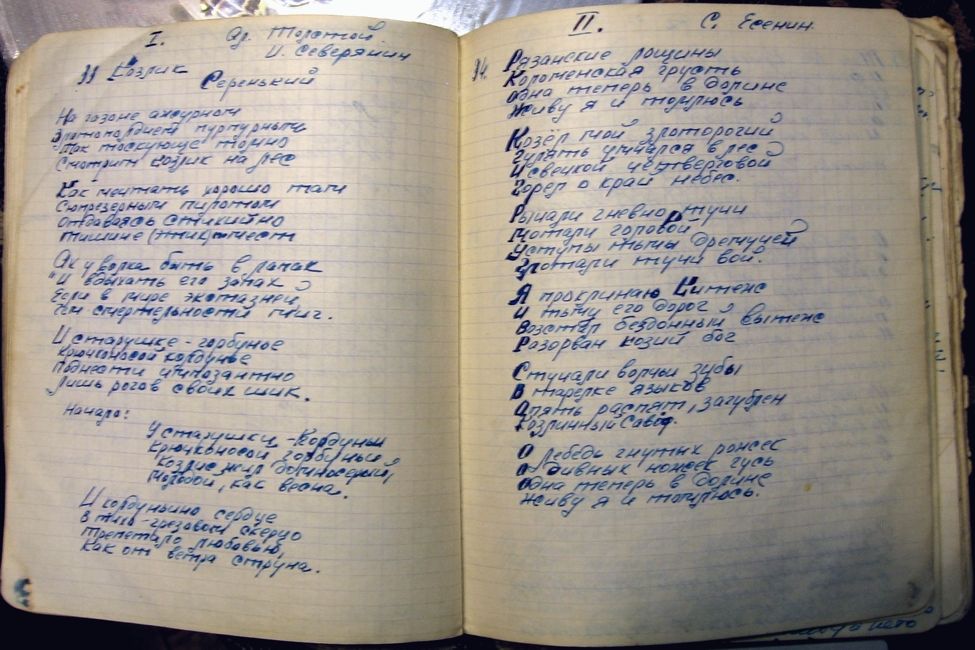 I. Ал. Толстой.
И. Северянин
33 Козлик
Серенький
На газоне ажурном
Златополднем пурпурным
Так тоскующе томно
Смотрит козлик на лес
Как мечтать хорошо там
Сюрпрезерным пилотом
Отдаваясь стихийно
Тишине
Ах у волка быть в лапах
И вдыхать его запах
Если в мире экстазней
Чем смертельности миг.
И старушке - горбунье
Крючконосой колдунье
Поднести импозантно
Лишь рогов своих шик.
Начало:
У старушки - колдуньи
Крючконосой горбуньи
Козлик жил
Молодой, как весна.
И колдуньино сердце
В тихо-грезовом скерцо
Трепетало любовью,
Как от ветра струна.
II. С. Есенин.
34. Рязанские лощины
Коломенская грусть
Одна теперь в долине
Живу я и томлюсь
Козёл мой златорогий
Гулять умчался в лес
И свечкой четверговой
Горел о край небес.
Рычали гневно тучи
Мотали головой
Уступы тьмы дремучей
Глотали тучи вой.
Я проклинаю Китежс
И тьму его дорог
Восстал бездонный вытежс
Разорван козий бог
Стучали волчьи зубы
В тарелке языков
Опять распят, загублен
Козлиный Савоф.
О лебедь гнутых рожек
О дивных ножек гусь
Одна теперь в долине
Живу я и томлюсь.